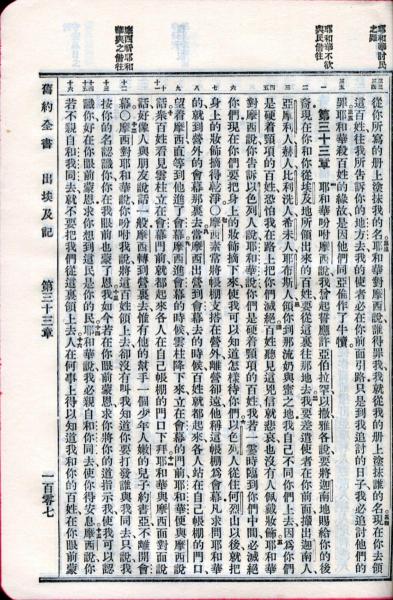 耶和華討民之罪
耶和華不欲與民偕往
摩西求耶和華與之偕往
從你所寫的册上塗抹我的名耶和華對摩西說誰得罪我我就從我的册上塗抹誰的名現在你去領
這百姓往我所告訴你的地方去我的使者必在你前面引路只是到我追討的日子我必追討他們的
罪耶和華殺百姓的緣故是因他們同亞倫作了牛犢
第三十三章 耶和華吩咐摩西說我曾起誓應許亞伯拉罕以撒雅各說要將迦南地賜給你的後
裔現在你和你從埃及地所領出來的百姓要從這裏往那地去我要差遣使者在你前面攆出迦南人
亞摩利人赫人比利洗人希未人耶布斯人領你到那流奶與蜜之地我自己不同你們上去因爲你們
是硬着頸項的百姓恐怕我在路上把你們滅絕百姓聽見這兇信就悲哀也沒有人佩戴妝飾耶和華
對摩西說你告訴以色列人說耶和華說你們是硬着頸項的百姓我若一霎時臨到你們中間必滅絕
你們現在你們要把身上的妝飾摘下來使我可以知道怎樣待你們以色列人從住何烈山以後就把
身上的妝飾摘得乾淨○摩西素常將帳棚支搭在營外離營卻遠他稱這帳棚爲會幕凡求問耶和華
的就到營外的會幕那裏去當摩西出營到會幕去的時候百姓就都起來各人站在自己帳棚的門口
望着摩西直等到他進了會幕摩西進會幕的時候雲柱降下來立在會幕的門前耶和華便與摩西說
話衆百姓看見雲柱立在會幕門前就都起來各人在自己帳棚的門口下拜耶和華與摩西面對面說
話好像人與朋友說話一般摩西轉到營裏去惟有他的幫手一個少年人嫩的兒子約書亞不離開會
幕○摩西對耶和華說你吩咐我說將這百姓領上去卻沒有叫我知道你要打發誰與我同去只說我
按你的名認識你你在我眼前也蒙了恩我如今若在你眼前蒙恩求你將你的道指示我使我可以認
識你好在你眼前蒙恩求你想到這民是你的民耶和華說我必親自和你同去使你得安息摩西說你
若不親自和我同去就不要把我們從這裏領上去人在何事上得以知道我和你的百姓在你眼前蒙
舊約全書 出埃及記 第三十三章 一百零七